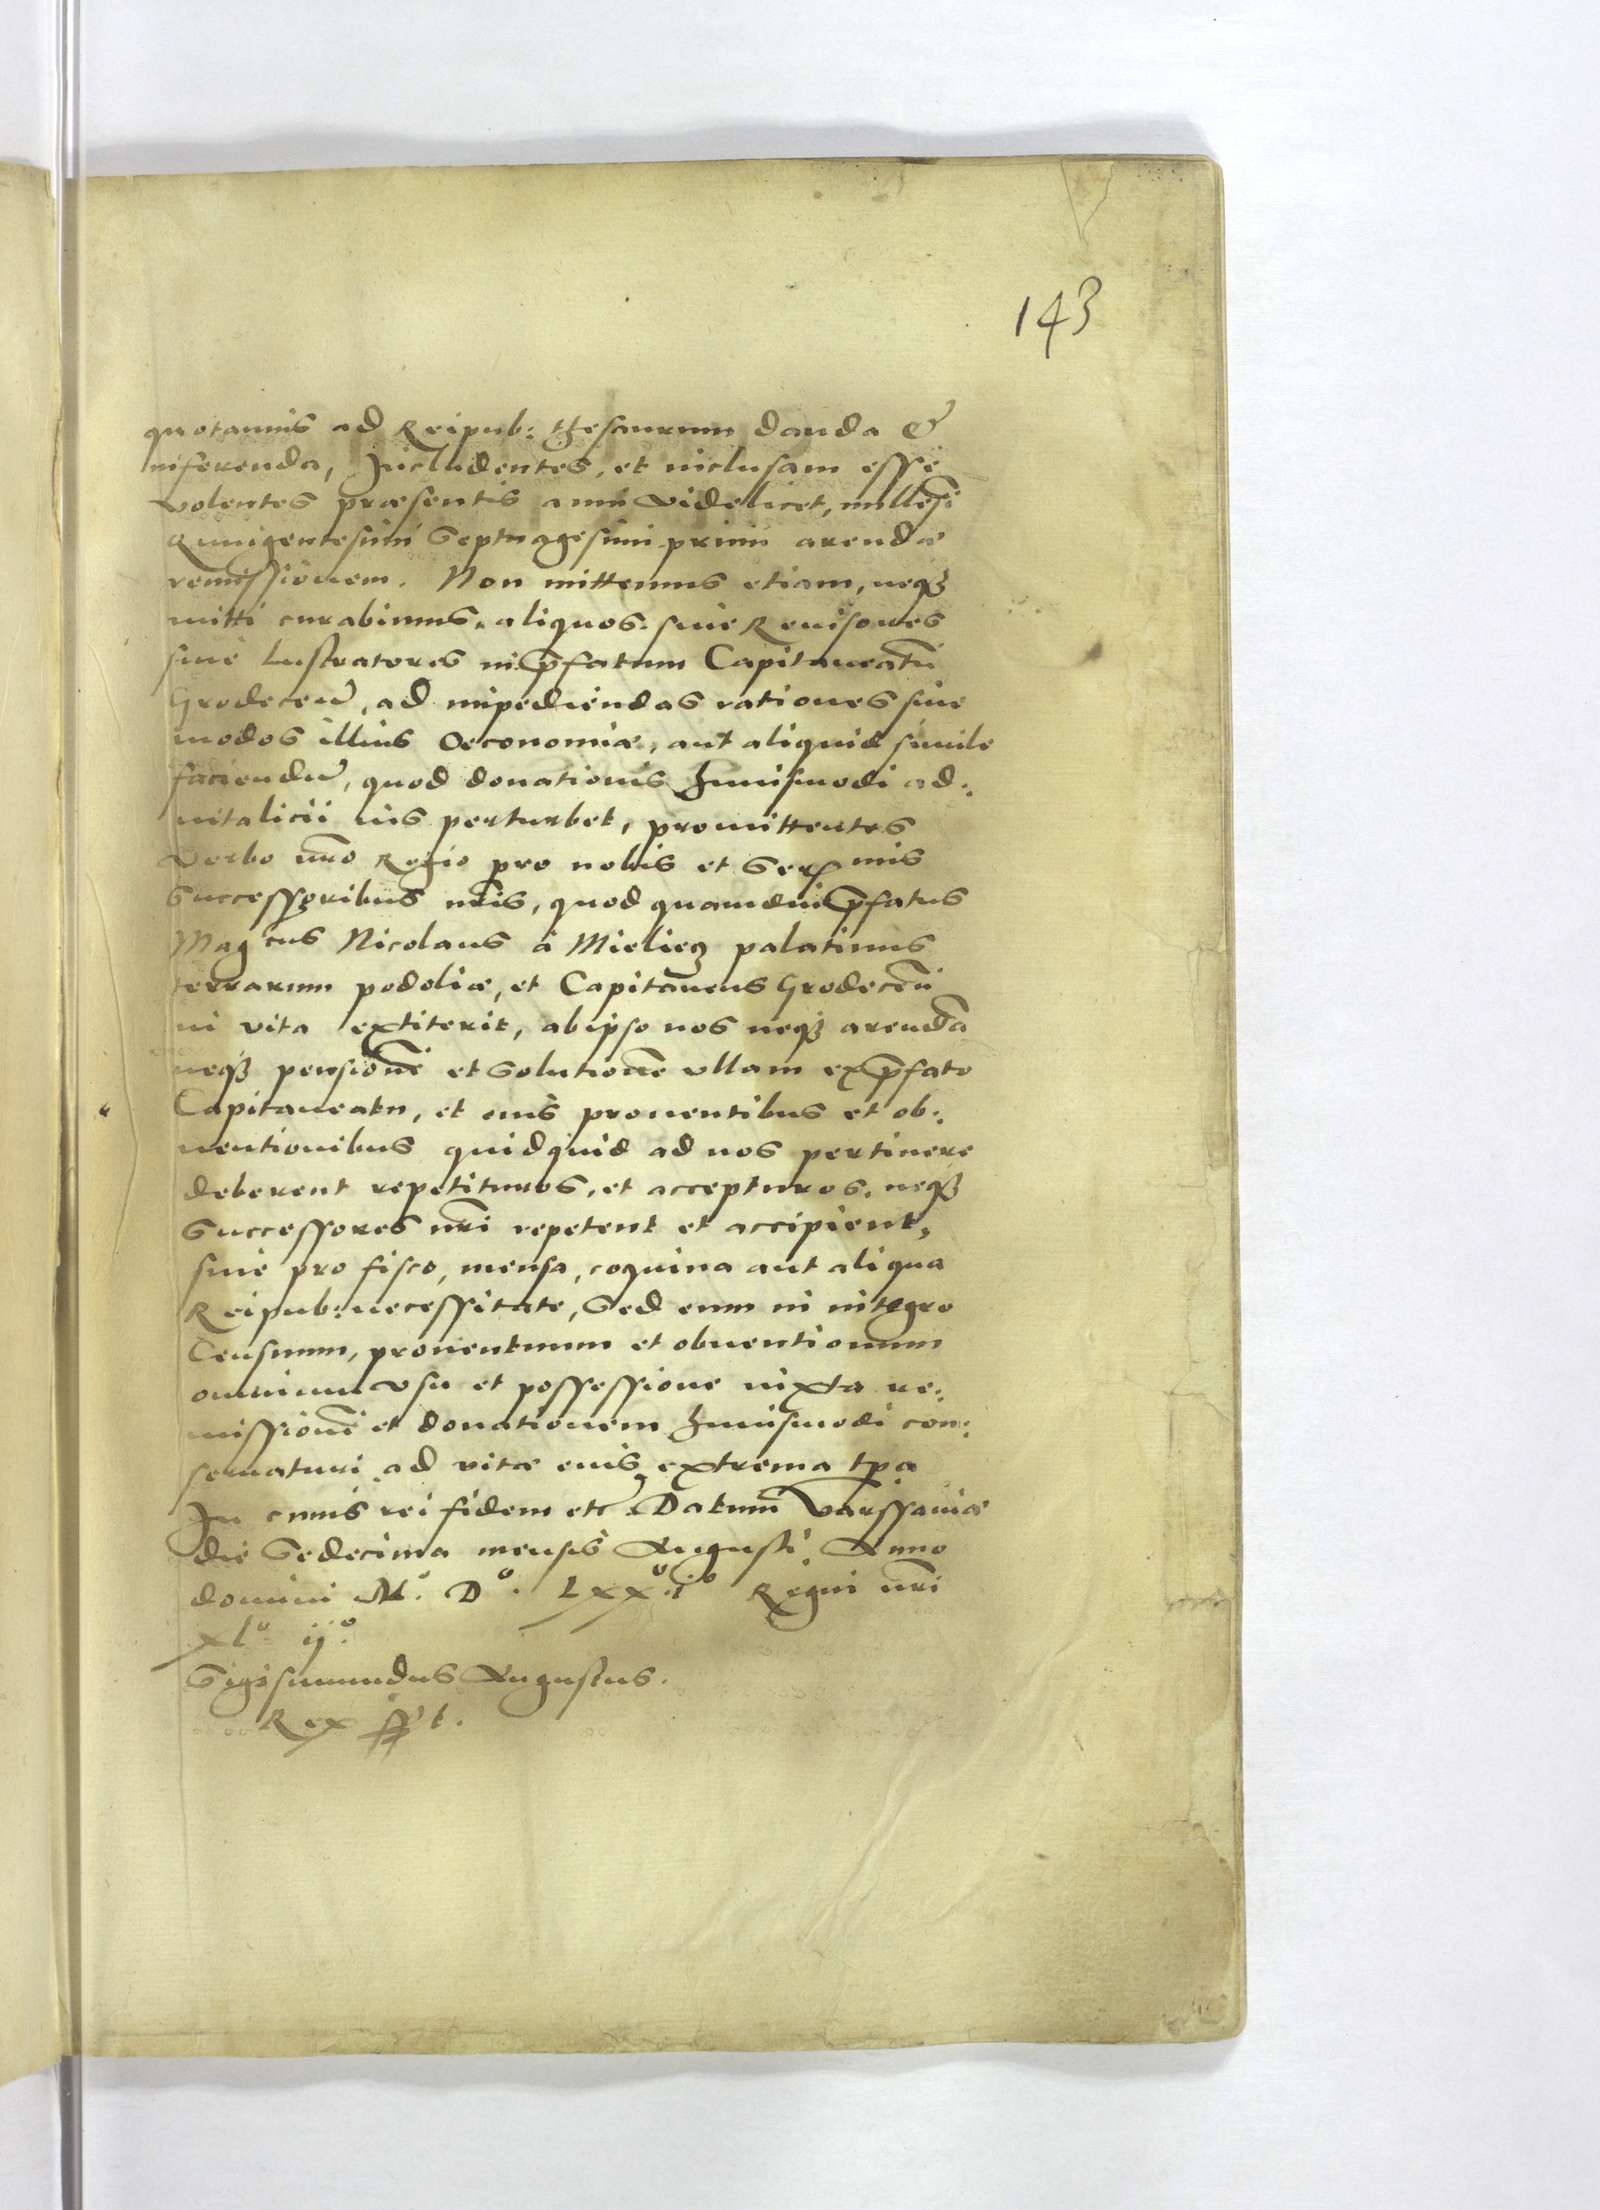 143
quotannis ad Reipub: thesaurum danda &
inferenda, Includentes, et inclusam esse
volentes praesentis anni videlicet, millesi͠
Quingentesimi Septuagesimi primi arendae
remissionem. Non mittemus etiam, neqꝫ
mitti curabimus, aliquos. siue Reuisores
siue Lustratores in p͠fatum Capitaneatu͠
Grodecen͠, ad impediendas rationes siue
modos illius Oeconomiae, aut aliquid simile
faciendu͠, quod donationis huiusmodi ad:
uitalicii ius perturbet, promittentes
Verbo nr͠o Regio pro nobis et Sereᵐⁱˢ
Successoribus nr͠is, quod quamdiu p͠fatus
Magᶜᵘˢ Nicolaus á Mieliecz palatinus
terrarum podoliae, et Capitaneus Grodecen͠
in vita extiterit, ab ipso nos neqꝫ arenda͠
neqꝫ pensione͠ et solutione͠ vllam ex p͠fato
Capitaneatu, et eius prouentibus et ob:
uentionibus quidquid ad nos pertinere
deberent repetituros, et accepturos, neqꝫ
Successores nr͠i repetent et accipient,
siue pro fisco, mensa, coquina aut aliqua
Reipub: necessitate, Sed eum in integro
Censuum, prouentuum et obuentionum
omnium vsu et possessione iuxta re:
missione͠ et donationem huiusmodi con:
seruaturi ad vitae eius extrema tp͠a
In cuius rei fidem etc͠. Datum͠ Varssauiae
die Sedecima mensis Augusti Anno
domini M.° D.° Lxx.° i.° Regni nr͠i
xl.° ij.°
Sigismundus Augustus.
Rex sst.